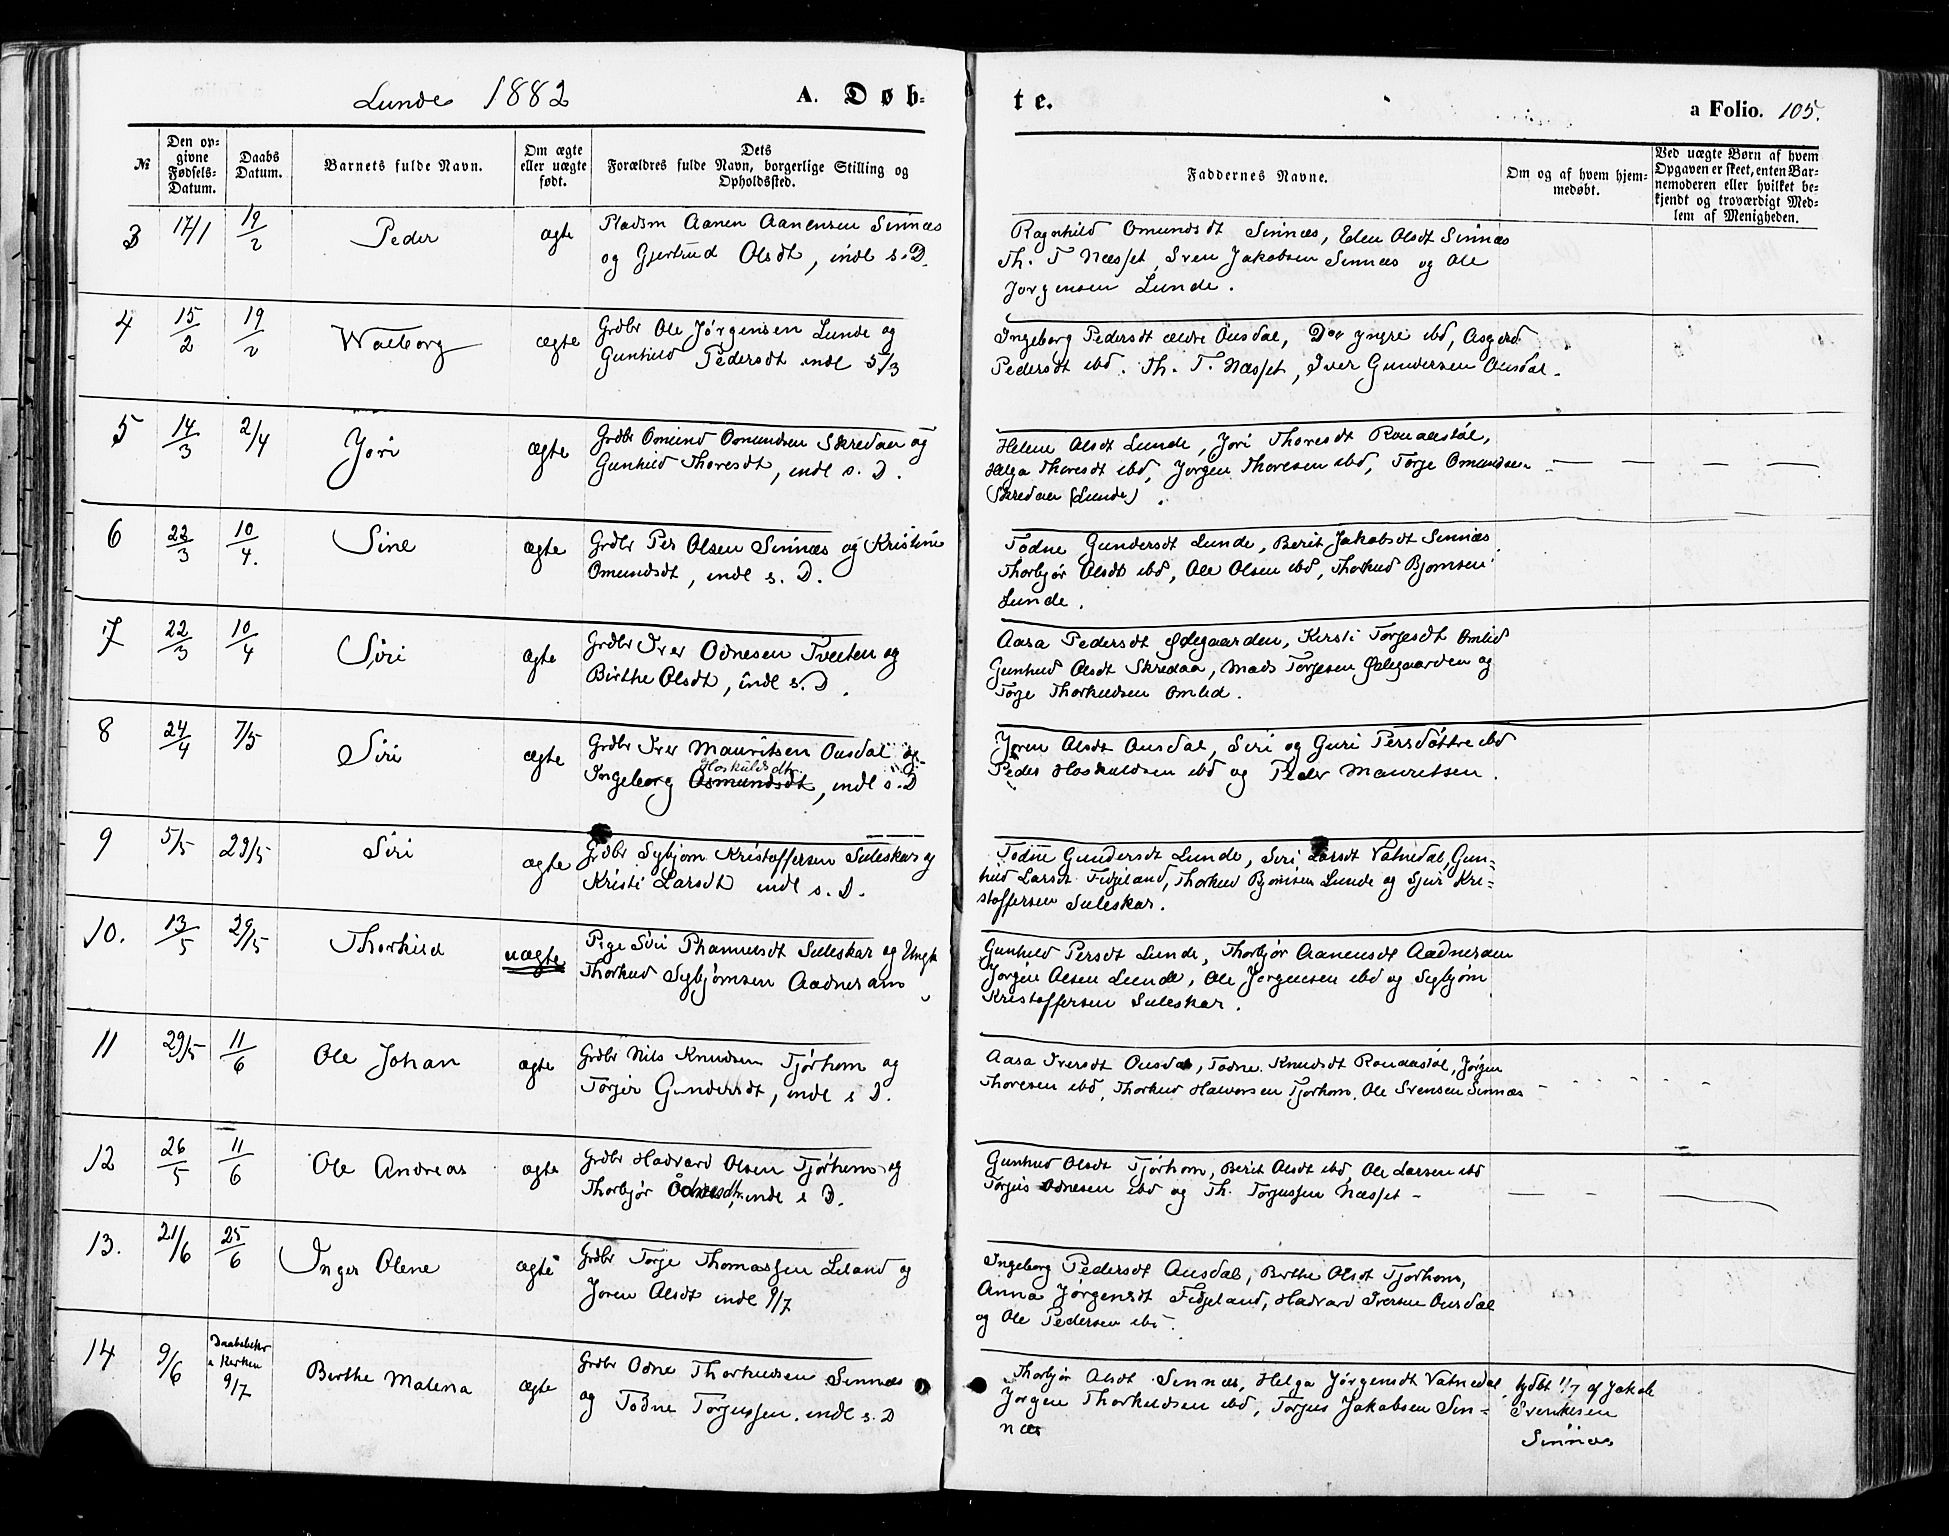 Lunde 1882
A. Døb-
te.
a Folio. 105.
№
Den op-
givne
Fødsels-
Datum.
Daabs
Datum.
Barnets fulde Navn.
Om ægte
eller uægte
født.
Dets
Forældres fulde Navn, borgerlige Stilling og
Opholdssted.
Faddernes Navne.
Om og af hvem hjem-
medøbt.
Ved uægte Børn af hvem
Opgaven er skeet, enten Bar-
nemoderen eller hvilket be-
kjendt og troværdigt Med-
lem af Menigheden.
3 17/1 19/2 Peder ægte
Pladsm Aanen Aanensen Sinnæs
og Gjertrud Olsdt, indl s. D.
Ragnhild Omundsdt Sinnæs, Elen Olsdt Sinnæs
Th. T Næsset, Sven Jakobsen Sinnæs og Ole
Jørgensen Lunde.
4 15/2 19/2 Walborg ægte
Grdbr Ole Jørgensen Lunde og
Gunhild Pedersdt indl 5/3
Ingeborg Pedersdt ældre Ousdal, Do yngre ibd, Asgerd
Pedersdt ibd. Th. T. Næsset, Iver Gundersen Ousdal.
5 14/3 2/4 Jøri ægte
Grdbr Omund Omundsen Skredaa og
Gunhild Thoresdt, indl s. D.
Helene Olsdt Lunde, Jøri Thoresdt Ronaastøl,
Helga Thoresdt ibd, Jørgen Thoresen ibd, Torje Omundsen
Skredaa (Lunde).
6 22/3 10/4. Sine ægte
Grdbr Per Olsen Sinnæs og Kristine
Omundsdt, indl s. D.
Todne Gundersdt Lunde, Berit Jakobsdt Sinnæs
Thorbjør Olsdt ibd, Ole Olsen ibd, Thorkild Bjørnsen
Lunde.
7 22/3 10/4 Siri ægte
Grdbr Iver Odnesen Tveiten og
Birthe Olsdt, indl s. D.
Aasa Pedersdt Ødegaarden, Kirsti Torjesdt Omlid
Gunhild Olsdt Skredaa, Mads Torjesen Ødegaarden og
Torje Thorkildsen Omlid.
8 24/4 7/5 Siri ægte
Grdbr Iver Mauritsen Ousdal og
Hoskuldsdt
Ingeborg Osmundsdt, indl s. D
Jøren Olsdt Ousdal, Siri og Guri Persdøttre ibd
Peder Hoskuldsen ibd og Peder Mauritsen.
9 5/5 29/5 Siri ægte
Grdbr Sybjørn Kristoffersen Suleskar og
Kristi Larsdt indl s. D.
Todne Gundersdt Lunde, Siri Larsdt Vatnedal, Gun-
hild Larsdt Fidjeland, Thorkild Bjørnsen Lunde og Sjur Kri-
stoffersen Suleskar.
10. 13/5 29/5 Thorkild uægte
Pige Siri Suleskar og Ungk
Thorkild Sybjørnsen Aadneram
Gunhild Persdt Lunde, Thorbjør Aanensdt Aadneram
Jørgen Olsen Lunde, Ole Jørgensen ibd og Sybjørn
Kristoffersen Suleskar.
11 29/5 11/6 Ole Johan ægte
Grdbr Nils Knudsen Tjørhom og
Torjer Gundersdt, indl s D.
Aasa Iversdt Ousdal, Todne Knudsdt Ronaastøl, Jørgen
Thoresen ibd, Thorkild Halvorsen Tjørhom, Ole Svensen Sinnæs
12 26/5 11/6 Ole Andreas ægte
Grdbr Hadvard Olsen Tjørhom og
Thorbjør Odnesdt, indl s D.
Gunhild Olsdt Tjørhom, Berit Olsdt ibd, Ole Larsen ibd
Torjus Odnesen ibd og Th. Torjussen Næsset -
13. 21/6 25/6 Inger Olene ægte
Grdbr Torje Thomassen Liland og
Jøren Olsdt indl 9/7
Ingeborg Pedersdt Ousdal, Birthe Olsdt Tjørhom,
Anna Jørgensdt Fidjeland, Hadvard Iversen Ousdal
og Ole Pedersen ibd.
14 9/6 Daabsbekr
i Kirken
9/7
Birthe Malena ægte
Grdbr Odne Thorkildsen Sinnæs
og Todne Torjussen. indl s. D
Thorbjør Olsdt Sinnæs, Helga Jørgensdt Vatnedal
Jørgen Thorkildsen ibd, Torjus Jakobsen Sin-
næs
hjdbt 11/7 af Jakob
Svenksen
Sinnæs